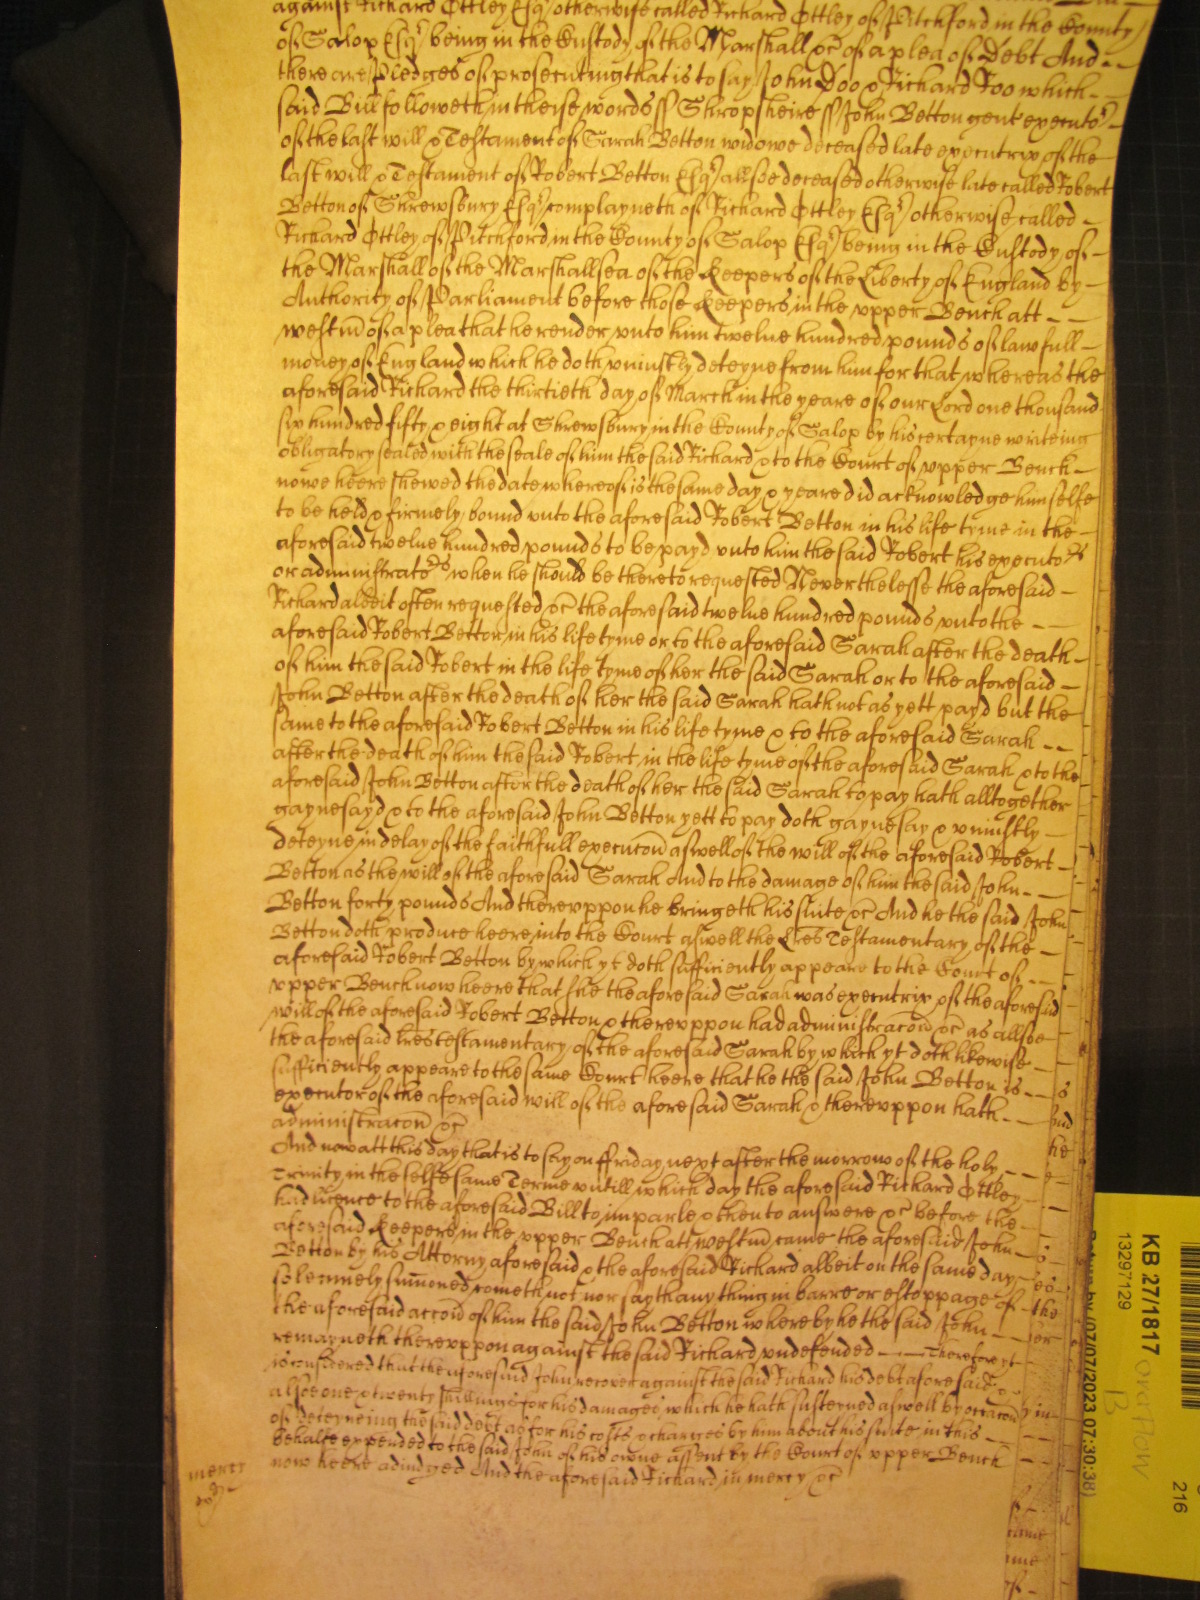 against Richard Ottley Esqr otherwise called Richard Ottley of Pitchford in the County
of Salop Esqr being in the Custody of the Marshall &c of a plea of Debt And
there are Pledges of prosecuting that is to say John Doo & Richard Roo which
said Bill followeth in theise words ss Shropsheire ss John Betton gent executor
of the last will & Testament of Sarah Betton widowe deceased late executrix of the
last will & Testament of Robert Betton Esqr allsoe deceased otherwise late called Robert
Betton of Shrewsbury Esqr complayneth of Richard Ottley Esqr otherwise called
Richard Ottley of Pitchford in the County of Salop Esqr being in the Custody of
the Marshall of the Marshallsea of the Keepers of the Liberty of England by
Authority of Parliament before those Keepers in the upper Bench att
westm of a plea that he render unto him twelve hundred pounds of lawfull
money of England which he doth uniustly deteyne from him for that whereas the
aforesaid Richard the thirtieth day of March in the yeare of our Lord one thousand
six hundred fifty & eight at Shrewsbury in the County of Salop by his certayne writeing
obligatory sealed with the seale of him the said Richard & to the Court of upper Bench
nowe heere shewed the date whereof is the same day & yeare did acknowledge himselfe
to be held & firmely bound unto the aforesaid Robert Betton in his life tyme in the
aforesaid twelve hundred pounds to be payd unto him the said Robert his executors
or administrators when he should be thereto requested Neverthelesse the aforesaid
Richard albeit often requested &c the aforesaid twelve hundred pounds unto the
aforesaid Robert Betton in his life tyme or to the aforesaid Sarah after the death
of him the said Robert in the life tyme of her the said Sarah or to the aforesaid
John Betton after the death of her the said Sarah hath not as yett payd but the
same to the aforesaid Robert Betton in his life tyme & to the aforesaid Sarah
after the death of him the said Robert in the life tyme of the aforesaid Sarah & to the
aforesaid John Betton after the death of her the said Sarah to pay hath alltogether
gaynesayd & to the aforesaid John Betton yett to pay doth gaynesay & uniustly
deteyne in delay of the faithfull execucon aswell of the will of the aforesaid Robert
Betton as the will of the aforesaid Sarah And to the damage of him the said John
Betton forty pounds And thereuppon he bringeth his suite &c And he the said John
Betton doth produce heere into the Court aswell the Lres Testamentary of the
aforesaid Robert Betton by which yt doth sufficiently appeare to the Court of
upper Bench now heere that she the aforesaid Sarah was executrix of the aforesaid
will of the aforesaid Robert Betton & thereuppon had administracon &c as allsoe
the aforesaid lres testamentary of the aforesaid Sarah by which yt doth likewise
sufficiently appeare to the same Court heere that he the said John Betton is
executor of the aforesaid will of the aforesaid Sarah & thereuppon hath
administracon &c
And now att this day that is to say on ffriday next after the morrow of the holy
Trinity in the selfe same Terme untill which day the aforesaid Richard Ottley
had licence to the aforesaid Bill to imparle & then to answere &c before the
aforesaid Keepers in the upper Bench att westm came the aforesaid John
Betton by his Attorny aforesaid & the aforesaid Richard albeit on the same day
solemnely summoned cometh not nor say thany thing in barre or estoppage of
the aforesaid accon of him the said John Betton whereby he the said John
remayneth thereuppon against the said Richard undefended Therefore yt
is considered that the aforesaid John recover against the said Richard his debt aforesaid
alsoe one & twenty shillings for his damages which he hath susteyned aswell by occacon
of deteyneing the said debt as for his costs & charges by him about his suite in this
behalfe expended to the said John of his owne assent by the Court of upper Bench
now heere adiudged And the aforesaid Richard in mercy &c
mercy
KB 27/1817
13297129
overflow
B
216
07/07/2023 07:30:38)